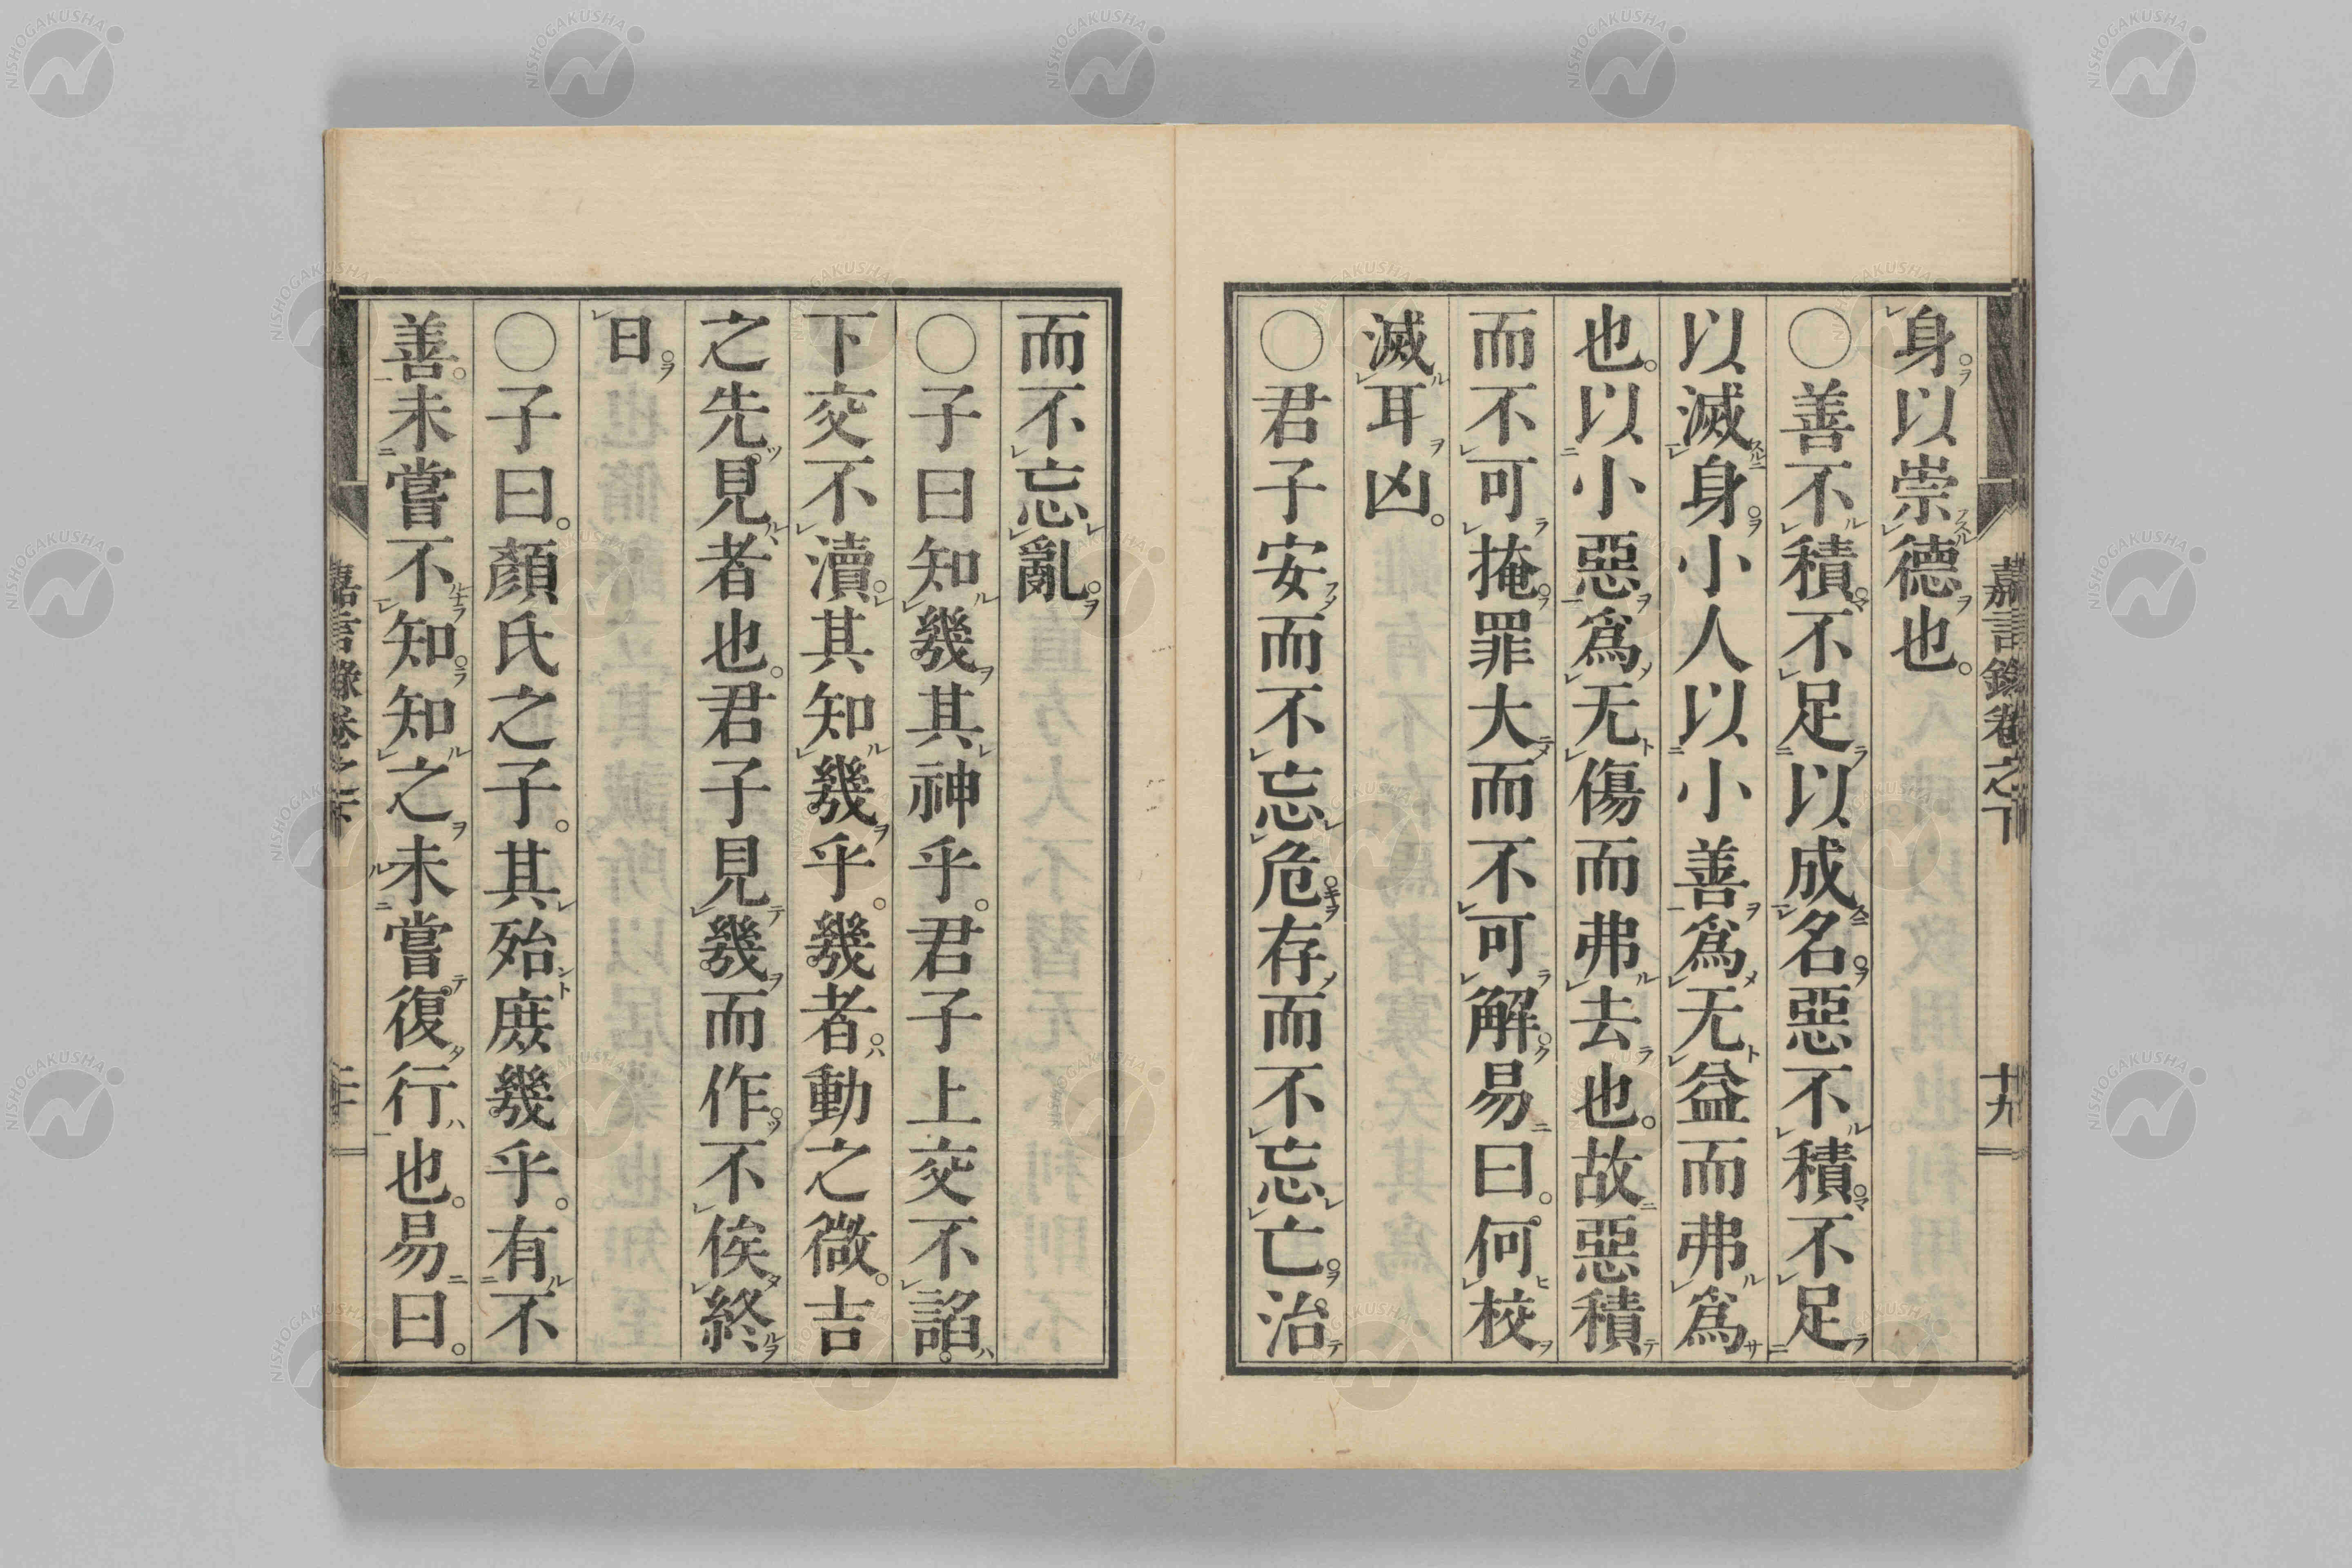 身以崇德也。
○善不積不足以成名惡不積不足
以滅身小人以小善爲无益而弗爲
也。以小惡爲无傷而弗去也。故惡積
而不可掩罪大而不可解易曰。何校
滅耳凶。
○君子安而不忘危存而不忘亡治
嘉言錄卷之下
十九
而不忘亂
○子曰知幾其神乎。君子上交不諂
下交不瀆其知幾乎。幾者動之微。吉
之先見者也。君子見幾而作不俟終
日
○子曰。顏氏之子。其殆庶幾乎。有不
善。未嘗不知知之未嘗復行也。易曰。
嘉言錄卷之下
二十
NISHOGAKUSHA